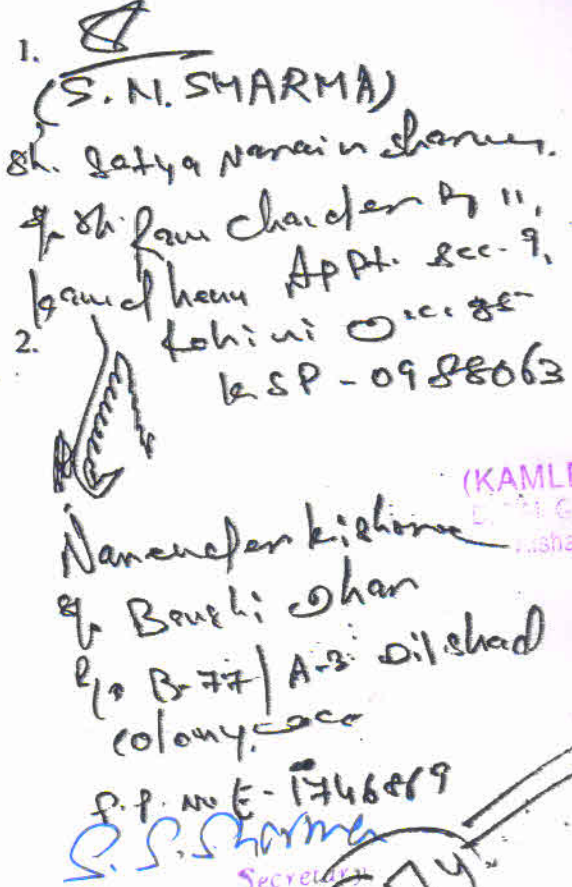 1.
(S.N. SHARMA)
Sh. Satya Narain Sharma.
S/o Sh. Ram Chander R/o 11,
Kamdhenu Appt. Sec-9,
2. Rohini
KSP-0988063
(KAML
Narender Kishore
S/o Banshi Dhar
R/o B-77/A-3 Dilshad
colony
No E-1746869
S. S. Sharma
Secretary